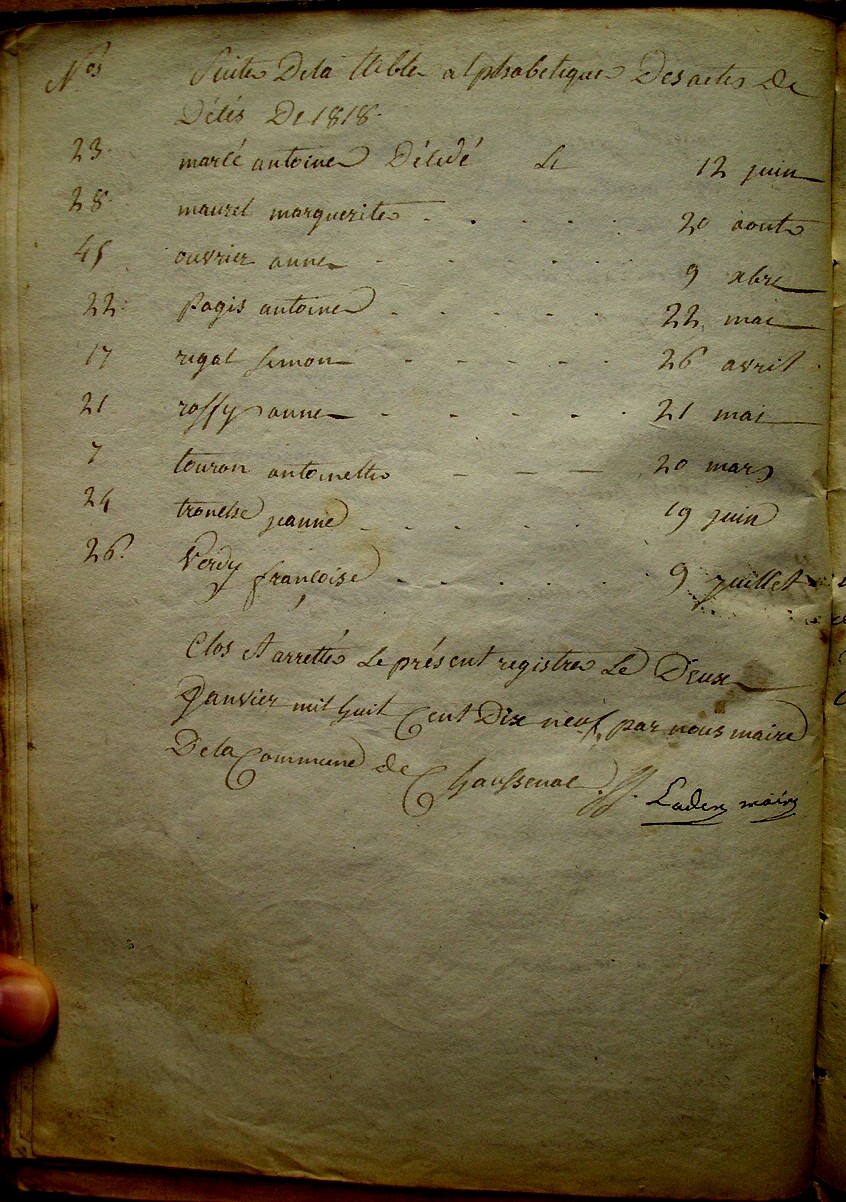 Nos Suite De la table alphabetique Des actes de
Décés De 1818.
23. marcé antoine Décédé Le 12 juin
28. maurel marguerite 20 aoute
45 ouvrier anne 9 xbre
22. Pagis antoine 22 mai
17 rigal simon 26 avril
21 roffy anne 21 mai
7 touron antoinette 20 mars
24 jeanne 19 juin
26. Verdy françoise 9 juillet
Clos et arretté Le présent registre Le Deux
Janvier mil huit Cent Dix neuf par nous maire
De la Commune de Chaussenac
maire